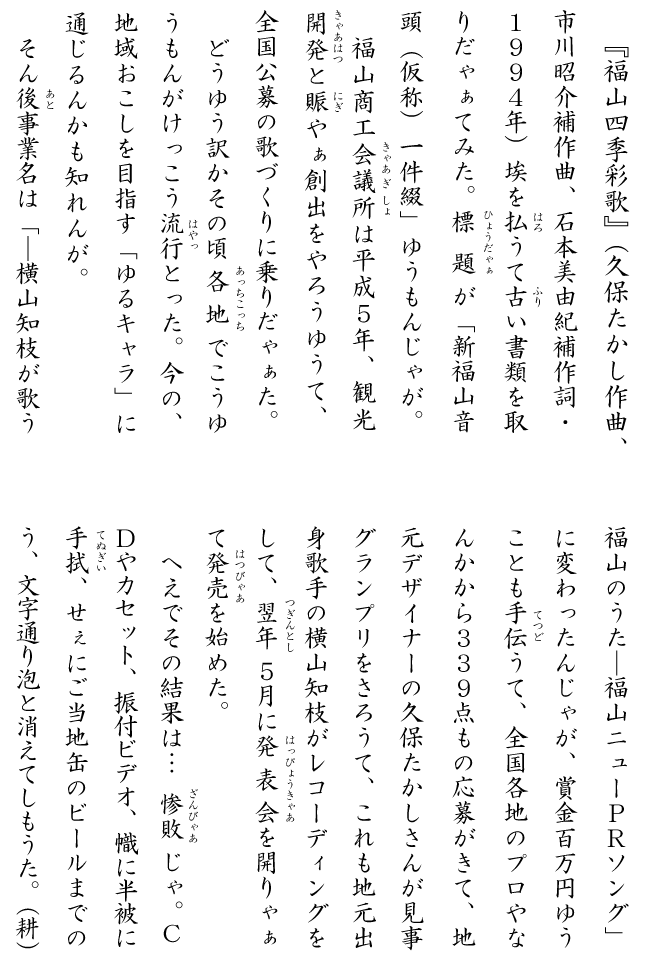 『福山四季彩歌』（久保たかし作曲、
市川昭介補作曲、石本美由紀補作詞・
１９９４年）埃を払うて古い書類を取
りだゃぁてみた。標題が「新福山音
頭（仮称）一件綴」ゆうもんじゃが。
福山商工会議所は平成５年、観光
開発と賑やぁ創出をやろうゆうて、
全国公募の歌づくりに乗りだゃぁた。
どうゆう訳かその頃各地でこうゆ
うもんがけっこう流行とった。今の、
地域おこしを目指す「ゆるキャラ」に
通じるんかも知れんが。
そん後事業名は「―横山知枝が歌う
福山のうた―福山ニューＰＲソング」
に変わったんじゃが、賞金百万円ゆう
ことも手伝うて、全国各地のプロやな
んかから３３９点もの応募がきて、地
元デザイナーの久保たかしさんが見事
グランプリをさろうて、これも地元出
身歌手の横山知枝がレコーディングを
して、翌年５月に発表会を開りゃぁ
て発売を始めた。
へえでその結果は…惨敗じゃ。Ｃ
Ｄやカセット、振付ビデオ、幟に半被に
手拭、せぇにご当地缶のビールまでの
う、文字通り泡と消えてしもうた。（耕）